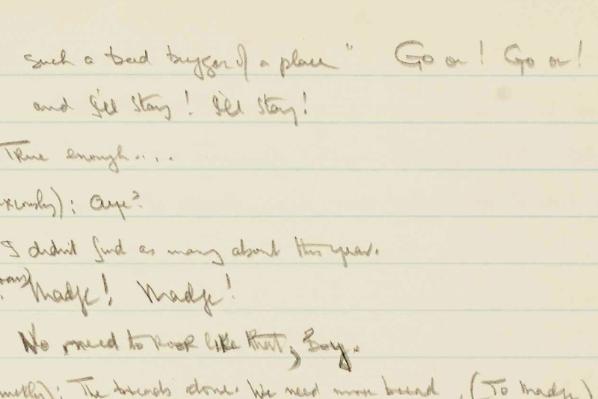 such a bad bugger of a place" Go on! Go on!
and I'll stay! I'll stay!
True enough....
xiously): Aye?
I didn't find as many about this year.
Madge! Madge!
No need to look like that, Boy.
The bread's done. We need more bread. (To Madge)